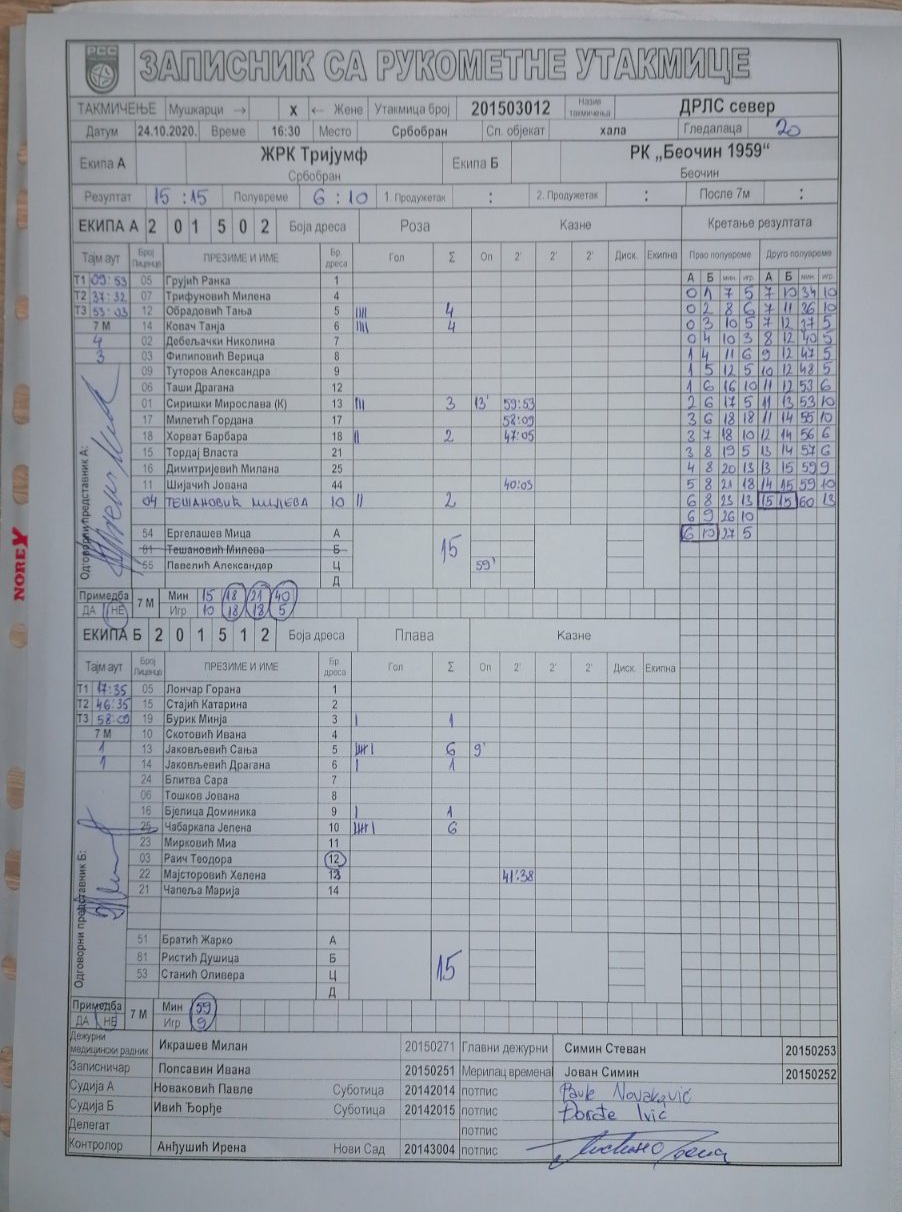 РСС ЗАПИСНИК СА РУКОМЕТНЕ УТАКМИЦЕ
ТАКМИЧЕЊЕ Мушкарци → X ← Жене Утакмица број 201503012 Назив такмичења ДРЛС север
Датум 24.10.2020. Време 16:30 Место Србобран Сп. објекат хала Гледалаца 20
Екипа А ЖРК Тријумф Србобран Екипа Б РК „Беочин 1959“ Беочин
Резултат 15 : 15 Полувреме 6 : 10 1. Продужетак : 2. Продужетак : После 7м :
ЕКИПА А 2 0 1 5 0 2 Боја дреса Роза Казне Кретање резултата
Тајм аут Број Лиценце ПРЕЗИМЕ И ИМЕ Бр. дреса Гол Σ Оп 2' 2' 2' Диск. Екипна Прво полувреме Друго полувреме
А Б мин. игр. А Б мин. игр.
T1 09:53 05 Грујић Ранка 1 0 1 7 5 7 10 34 10
T2 37:32 07 Трифуновић Милена 4 0 2 8 6 7 11 36 10
T3 53:03 12 Обрадовић Тања 5 |||| 4 0 3 10 5 7 12 37 5
7 М 14 Ковач Танја 6 |||| 4 0 4 10 3 8 12 40 5
4 02 Дебељачки Николина 7 1 4 11 6 9 12 47 5
3 03 Филиповић Верица 8 1 5 12 5 10 12 48 5
09 Туторов Александра 9 1 6 16 10 11 12 53 6
06 Таши Драгана 12 2 6 17 5 11 13 53 10
01 Сиришки Мирослава (К) 13 ||| 3 13' 59:53 3 6 18 18 11 14 55 10
17 Милетић Гордана 17 58:09 3 7 18 10 12 14 56 6
18 Хорват Барбара 18 || 2 47:05 3 8 19 5 13 14 57 6
15 Тордај Власта 21 4 8 20 13 13 15 59 9
16 Димитријевић Милана 25 5 8 21 18 14 15 59 10
11 Шијачић Јована 44 40:03 6 8 23 13 15 15 60 13
04 ТЕШАНОВИЋ МИЛЕВА 10 || 2 6 9 26 10
6 10 27 5
Одговорни представник А:
54 Ергелашев Мица А 15
81 Тешановић Милева Б
55 Павелић Александар Ц 59'
Д
Примедба 7 М Мин 15 18 21 40
ДА НЕ Игр 10 18 18 5
ЕКИПА Б 2 0 1 5 1 2 Боја дреса Плава Казне
Тајм аут Број Лиценце ПРЕЗИМЕ И ИМЕ Бр. дреса Гол Σ Оп 2' 2' 2' Диск. Екипна
T1 17:35 05 Лончар Горана 1
T2 46:35 15 Стајић Катарина 2
T3 58:00 19 Бурик Миња 3 | 1
7 М 10 Скотовић Ивана 4
1 13 Јаковљевић Сања 5 |||| | 6 9'
1 14 Јаковљевић Драгана 6 | 1
24 Блитва Сара 7
06 Тошков Јована 8
16 Бјелица Доминика 9 | 1
25 Чабаркапа Јелена 10 |||| | 6
23 Мирковић Миа 11
03 Раич Теодора 12
22 Мајсторовић Хелена 13 41:38
21 Чапеља Марија 14
Одговорни представник Б:
51 Братић Жарко А 15
81 Ристић Душица Б
53 Станић Оливера Ц
Д
Примедба 7 М Мин 59
ДА НЕ Игр 9
Дежурни медицински радник Икрашев Милан 20150271 Главни дежурни Симин Стеван 20150253
Записничар Попсавин Ивана 20150251 Мерилац времена Јован Симин 20150252
Судија А Новаковић Павле Суботица 20142014 потпис Pavle Novaković
Судија Б Ивић Ђорђе Суботица 20142015 потпис Đorđe Ivić
Делегат потпис
Контролор Анђушић Ирена Нови Сад 20143004 потпис
NOREX